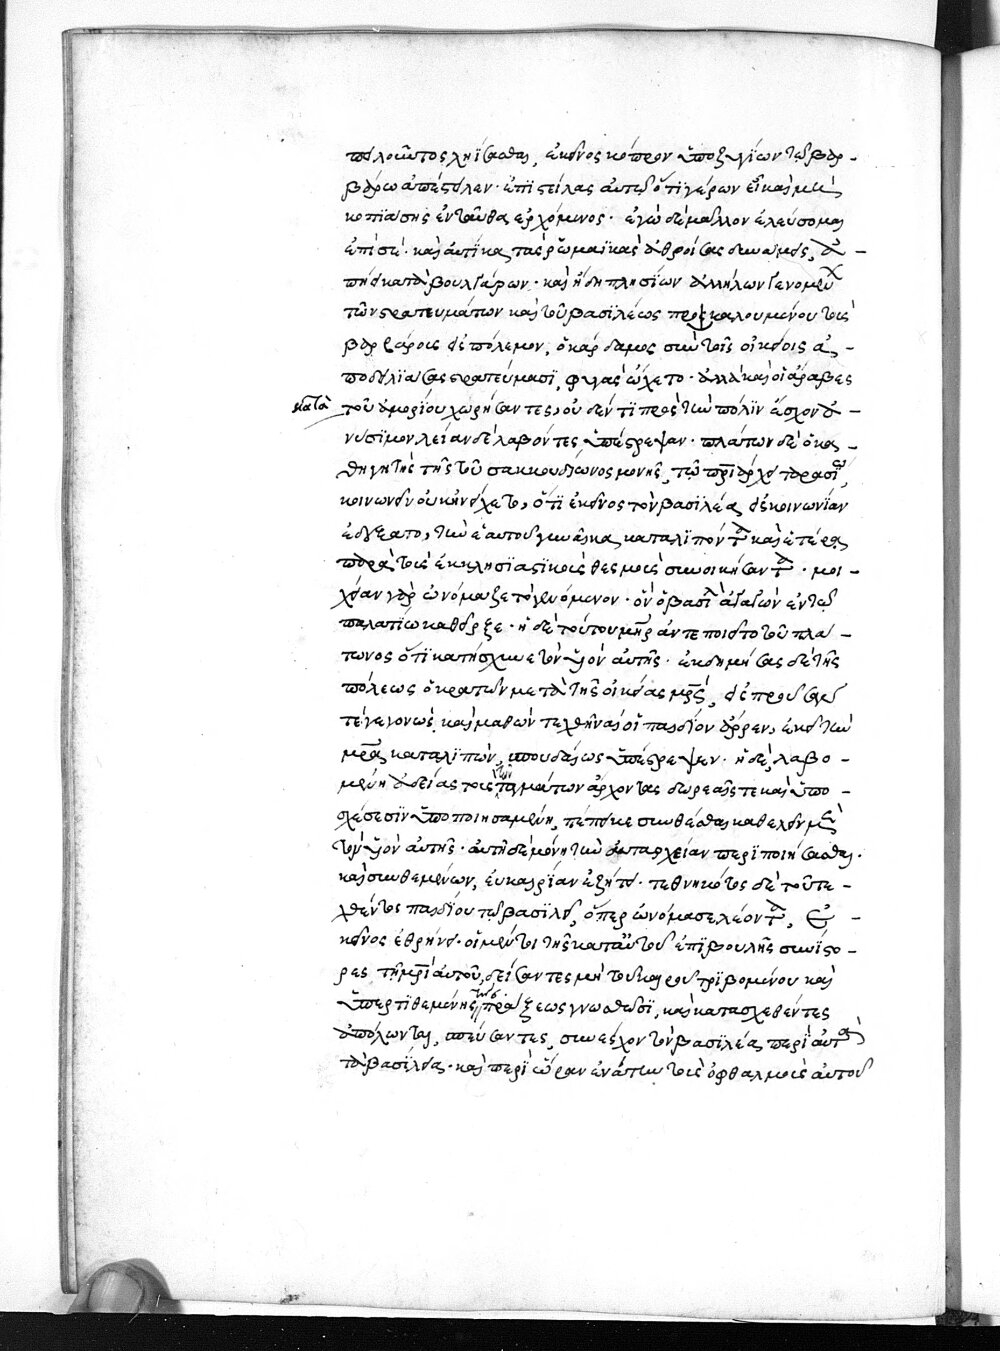 ἐκεῖνος κόπρον ὑποζυγίων τῷ βαρ-
βάρῳ ἀπέστειλεν· ἐπιστείλας αὐτῷ ὅτι γέρων εἶ καὶ μὴ
κοπιάσῃς ἐνταῦθα ἐρχόμενος· ἐγὼ δὲ μᾶλλον ἐλεύσομαι
ἐπί σε· καὶ αὐτίκα τὰς ῥωμαϊκὰς ἀθροίσας δυνάμεις, ἀ-
πῄει κατὰ βουλγάρων· καὶ ἤδη πλησίων ἀλλήλων γενομένων
τῶν στρατευμάτων καὶ τοῦ βασιλέως προσκαλουμένου τοὺς
βαρβάρους εἰς πόλεμον, ὁ κάρδαμος σὺν τοῖς οἰκείοις ἀ-
ποδειλιάσας στρατεύμασι, φυγὰς ᾤχετο· ἀλλὰ καὶ οἱ ἄραβες
κατὰ τοῦ ἀμορίου χωρήσαντες, οὐδέν τι πρὸς τὴν πόλιν ἔσχον ἀ-
νύσιμον λείαν δὲ λαβόντες ὑπέστρεψαν· πλάτων δὲ ὁ κα-
θηγητὴς τῆς τοῦ σακκουδίωνος μονῆς, τῷ πατριάρχῃ ταρασίῳ,
κοινωνεῖν οὐκ ἠνείχετο, ὅτι ἐκεῖνος τὸν βασιλέα εἰς κοινωνίαν
ἐδέξατο, τὴν ἑαυτοῦ γυναῖκα καταλιπόντα καὶ ἑτέρᾳ
παρὰ τοὺς ἐκκλησιαστικοὺς θεσμοὺς συνοικήσαντα· μοι-
χείαν γὰρ ὠνόμαζε τὸ γενόμενον· ὃν ὁ βασιλεὺς ἀγαγὼν ἐν τῷ
παλατίῳ καθεῖρξε· ἡ δὲ τούτου μήτηρ ἀντεποιεῖτο τοῦ πλά-
τωνος ὅτι κατῄσχυνε τὸν υἱὸν αὐτῆς· ἐκδημήσας δὲ τῆς
πόλεως ὁ κρατῶν μετὰ τῆς οἰκείας μητρὸς, εἰς προῦσαν
τε γεγονὼς καὶ μαθὼν τεχθῆναί οἱ παιδίον ἄρρεν, ἐκεῖ τὴν
μητέρα καταλιπὼν, σπουδαίως ὑπέστρεψεν· ἡ δὲ, λαβο-
μένη ἀδείας τοὺς τῶν ταγμάτων ἄρχοντας δωρεαῖς τε καὶ ὑπο-
σχέσεσιν ὑποποιησαμένη, πέπεικε συνθέσθαι καθελεῖν μὲν
τὸν υἱὸν αὐτῆς· αὐτῇ δὲ μόνῃ τὴν αὐταρχίαν περιποιήσασθαι·
καὶ συνθεμένων, εὐκαιρίαν ἐζήτει· τεθνηκότος δὲ τοῦ τε-
χθέντος παιδίου τῷ βασιλεῖ, ὅπερ ὠνόμασε λέοντα, ἐ-
κεῖνος ἐθρήνει· οἱ μέντοι τῆς κατ' αὐτοῦ ἐπιβουλῆς συνίστο-
ρες τῇ μητρὶ αὐτοῦ, δείσαντες μὴ τοῦ καιροῦ τριβομένου καὶ
ὑπερτιθεμένης τῆς πράξεως γνωσθῶσι, καὶ κατασχεθέντες
ἀπόλωνται, σπεύσαντες, συνέσχον τὸν βασιλέα περὶ αὐτὰ
τὰ βασίλεια· καὶ περὶ ὥραν ἐνάτην τοὺς ὀφθαλμοὺς αὐτοῦ